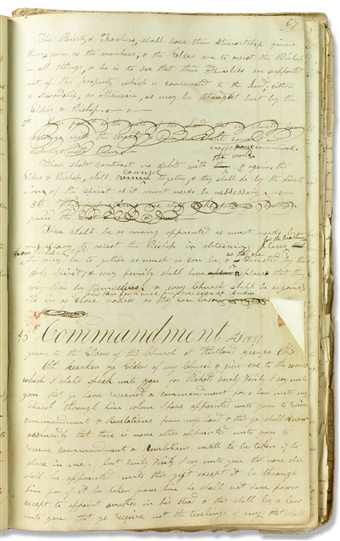 67
The Priests & Teachers, shall have their Stewardship given
them even as the members; & the Elders are to assist the Bishop
in all things, & he is to see that their Families are supported
out of the property which is consecrated to the Lord, either
a Stewardship, or otherwise, as may be thought best by the
Elders & Bishop.
4th
Thou shalt contract no debts with the world
again the
Elders & Bishop, shall Council together, & they shall do by the direct
ions of the spirit as it must needs be necessary.
5th
There shall be as many appointed as must needs be
necessary to assist the Bishop in obtaining places
may be together as much as can be, & is directed by the
holy spirit; & every family shall have a place that they
may live by themselves & every Church shall be organized
in as close bodies as they can be
45th Commandment AD 1831
given to the Elders of this Church at Kirtland Geauga Ohio
Oh hearken ye Elders of my Church & give ear to the words
which I shall speak unto you for Behold Verily Verily I say unto
you that ye have received a commandment for a law unto my
church through him whom I have appointed unto you to receive
commandments & Revelations from my hand & this ye shall know
assuredly that there is none other appointed unto you to
receive commandments & Revelations untill he be taken if he
abide in me. but Verily Verily I say unto you that none else
shall be appointed unto this gift except it be through
him for if it be taken from him he shall not have power
except to appoint another in his stead & this shall be a law
unto you that ye receive not the teachings of any that shall